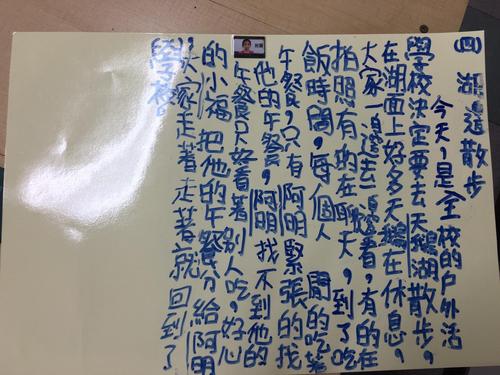 (四) 湖邊散步
今天,是全校的戶外活
學校決定要去天鵝湖散步。
在湖面上好多天鵝在休息。
大家一邊走一邊看,有的在
拍照有的在聊天,到了吃
飯時間,每個人 開的吃著
午餐,只有阿明緊張的找
他的午餐,阿明找不到他的
午餐只好看著別人吃,好心
的小福把他的午餐分給阿明
大家走著走著就回到了
學校。